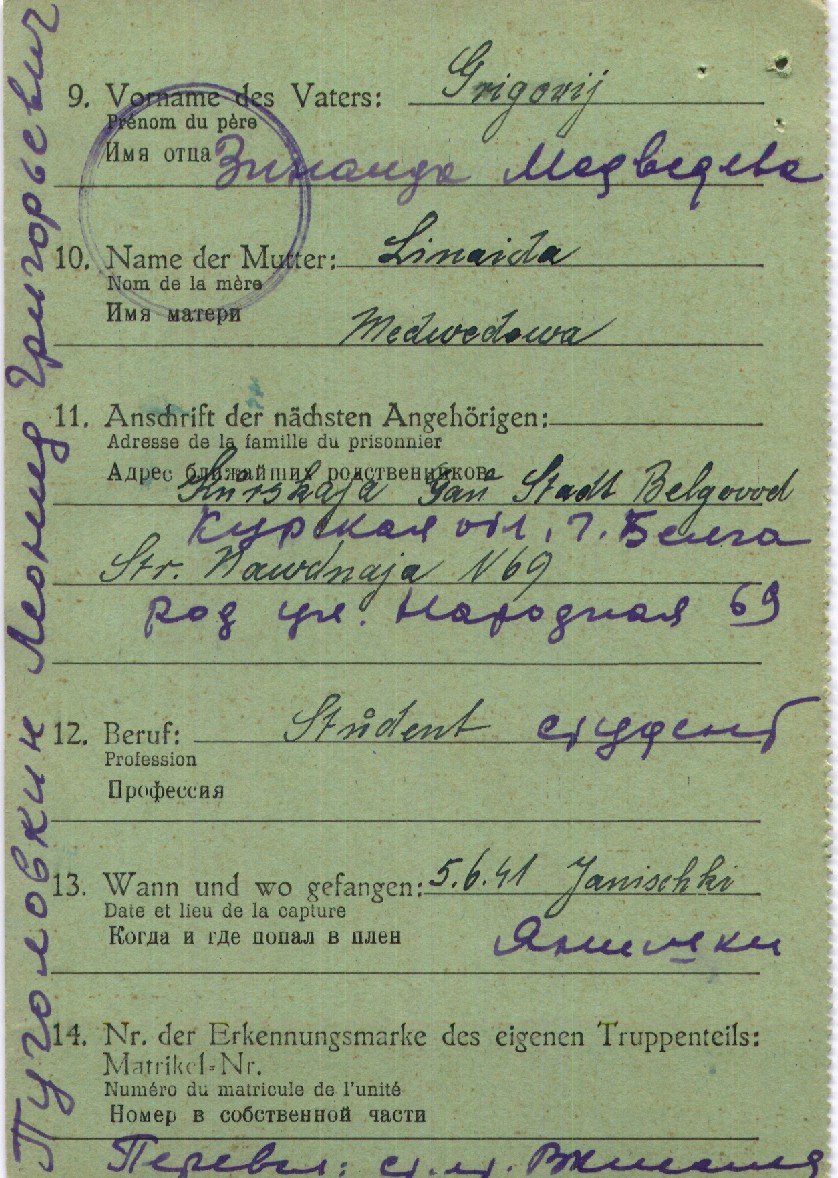 Пуголовкин Леонид Григорьевич
9. Vorname des Vaters: Grigorij
Prénom du père
Имя отца Зинаида Медведева
10. Name der Mutter: Sinaida
Nom de la mère
Имя матери
Medwedowa
11. Anschrift der nächsten Angehörigen:
Adresse de la famille du prisonnier
Адрес ближайших родственников
Kurskaja Stadt Belgorod
Курская обл, г. Белго
Str. N 69
род ул. Народная 69
12. Beruf: Student студент
Profession
Профессия
13. Wann und wo gefangen: 5.6.41 Janischki
Date et lieu de la capture
Когда и где попал в плен
Янишки
14. Nr. der Erkennungsmarke des eigenen Truppenteils:
Matrikel-Nr.
Numéro du matricule de l'unité
Номер в собственной части
Перевел: